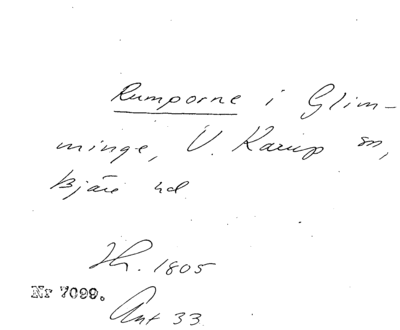 Rumporne i Glim-
minge, V. Karup sn,
Bjäre hd
Hr. 1805
Nr 7099.
Ant 33